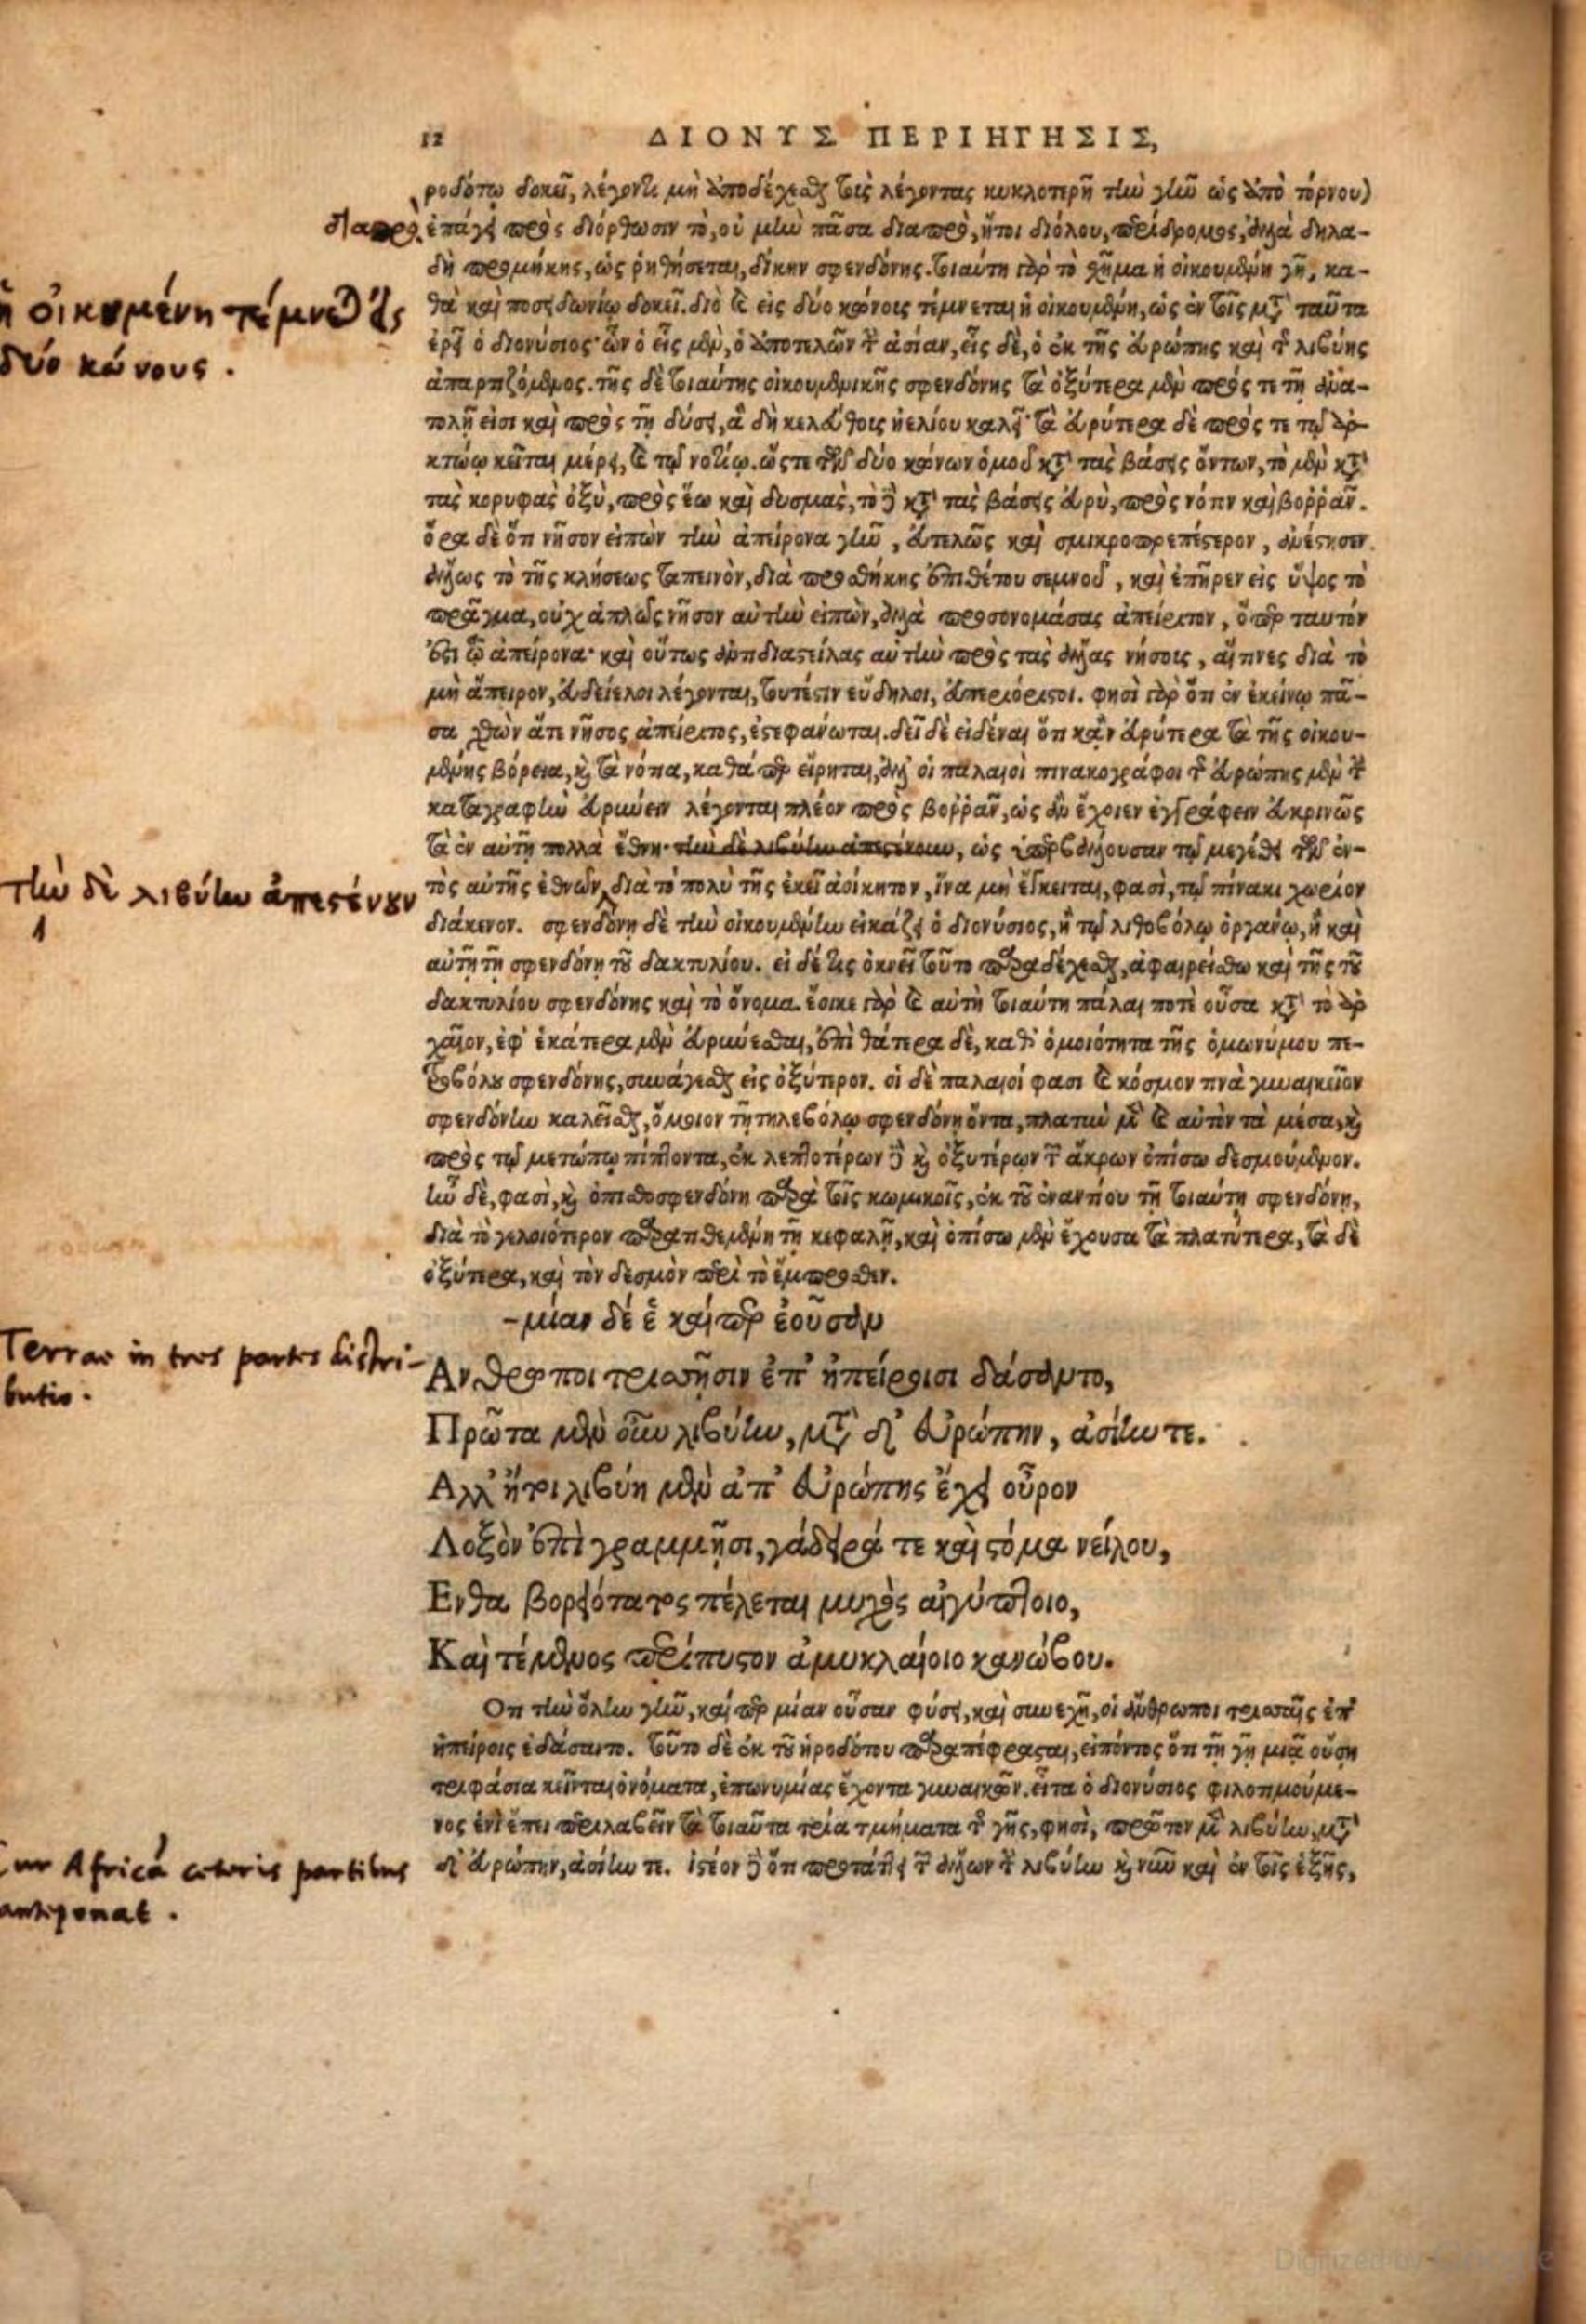 12 ΔΙΟΝΥΣ ΠΕΡΙΗΓΗΣΙΣ,
ροδότῳ δοκεῖ, λέγοντι μὴ ἀποδέχεσθαι τοὺς λέγοντας κυκλοτερῆ τὴν γῆν ὡς ἀπὸ τόρνου)
διαπρὸ. ἐπάγει πρὸς διόρθωσιν τὸ, οὐ μὴν πᾶσα διαπρὸ, ἤτοι διόλου, περίδρομος, ἀλλὰ δηλα-
δὴ προμήκης, ὡς ῥηθήσεται, δίκην σφενδόνης. τοιαύτη γὰρ τὸ σχῆμα ἡ οἰκουμένη γῆ, κα-
ἡ οἰκουμένη τέμνεται εἰς
δύο κώνους.
θὰ καὶ ποσειδωνίῳ δοκεῖ. διὸ καὶ εἰς δύο κώνους τέμνεται ἡ οἰκουμένη, ὡς ἐν τοῖς μετὰ ταῦτα
ἐρεῖ ὁ διονύσιος· ὧν ὁ εἷς μὲν, ὁ ἀποτελῶν τὴν ἀσίαν, εἷς δὲ, ὁ ἐκ τῆς εὐρώπης καὶ τῆς λιβύης
ἀπαρτιζόμενος. τῆς δὲ τοιαύτης οἰκουμενικῆς σφενδόνης τὰ ὀξύτερα μὲν πρός τε τῇ ἀνα-
τολῇ εἰσι καὶ πρὸς τῇ δύσει, ἃ δὴ κελεύθους ἠελίου καλεῖ· τὰ εὐρύτερα δὲ πρός τε τῷ ἀρ-
κτώῳ κεῖται μέρει, καὶ τῷ νοτίῳ. ὥστε τῶν δύο κώνων ὁμοῦ κατὰ τὰς βάσεις ὄντων, τὸ μὲν κατὰ
τὰς κορυφὰς ὀξὺ, πρὸς ἕω καὶ δυσμὰς, τὸ δὲ κατὰ τὰς βάσεις εὐρὺ, πρὸς νότον καὶ βορρᾶν.
ὅρα δὲ ὅτι νῆσον εἰπὼν τὴν ἀπείρονα γῆν, εὐτελῶς καὶ σμικροπρεπέστερον, ἀνέστησεν
ἄλλως τὸ τῆς κλήσεως ταπεινὸν, διὰ προσθήκης ἐπιθέτου σεμνοῦ, καὶ ἐπῆρεν εἰς ὕψος τὸ
πρᾶγμα, οὐχ ἁπλῶς νῆσον αὐτὴν εἰπὼν, ἀλλὰ προσονομάσας ἀπείριτον, ὅπερ ταυτόν
ἐστι τῷ ἀπείρονα· καὶ οὕτως ἀντιδιαστείλας αὐτὴν πρὸς τὰς ἄλλας νήσους, αἵτινες διὰ τὸ
μὴ ἄπειρον, εὐδείελοι λέγονται, τουτέστιν εὔδηλοι, εὐπεριόριστοι. φησὶ γὰρ ὅτι ἐν ἐκείνῳ πᾶ-
σα χθὼν ἅτε νῆσος ἀπείριτος, ἐστεφάνωται. δεῖ δὲ εἰδέναι ὅτι κἂν εὐρύτερα τὰ τῆς οἰκου-
μένης βόρεια, καὶ τὰ νότια, καθάπερ εἴρηται, ἀλλ' οἱ παλαιοὶ πινακογράφοι τῆς εὐρώπης μὲν τὴν
καταγραφὴν εὐρύνειν λέγονται πλέον πρὸς βορρᾶν, ὡς ἂν ἔχοιεν ἐγγράφειν εὐκρινῶς
τὰ ἐν αὐτῇ πολλὰ ἔθνη· τὴν δὲ λιβύην ἀπεστένουν, ὡς ὑπερβάλλουσαν τῷ μεγέθει τῶν ἐν-
τὴν δὲ λιβύην ἀπεστένουν
τὸς αὐτῆς ἐθνῶν, διὰ τὸ πολὺ τῆς ἐκεῖ ἀοίκητον, ἵνα μὴ ἔγκειται, φασὶ, τῷ πίνακι χωρίον
διάκενον. σφενδόνῃ δὲ τὴν οἰκουμένην εἰκάζει ὁ διονύσιος, ἢ τῷ λιθοβόλῳ ὀργάνῳ, ἢ καὶ
αὐτῇ τῇ σφενδόνῃ τοῦ δακτυλίου. εἰ δέ τις ὀκνεῖ τοῦτο παραδέχεσθαι, ἀφαιρείσθω καὶ τῆς τοῦ
δακτυλίου σφενδόνης καὶ τὸ ὄνομα. ἔοικε γὰρ καὶ αὐτὴ τοιαύτη πάλαι ποτὲ οὖσα κατὰ τὸ ἀρ
χαῖον, ἐφ' ἑκάτερα μὲν εὐρύνεσθαι, ἐπὶ θάτερα δὲ, καθ' ὁμοιότητα τῆς ὁμωνύμου πε-
τροβόλου σφενδόνης, συνάγεσθαι εἰς ὀξύτερον. οἱ δὲ παλαιοί φασι καὶ κόσμον τινὰ γυναικεῖον
σφενδόνην καλεῖσθαι, ὅμοιον τῇ τηλεβόλῳ σφενδόνῃ ὄντα, πλατὺν μὲν καὶ αὐτὸν τὰ μέσα, καὶ
πρὸς τῷ μετώπῳ πίπτοντα, ἐκ λεπτοτέρων δὲ καὶ ὀξυτέρων τῶν ἄκρων ὀπίσω δεσμούμενον.
ἦν δὲ, φασὶ, καὶ ὀπισθοσφενδόνη παρὰ τοῖς κωμικοῖς, ἐκ τοῦ ἐναντίου τῇ τοιαύτῃ σφενδόνῃ,
διὰ τὸ γελοιότερον παρατιθεμένη τῇ κεφαλῇ, καὶ ὀπίσω μὲν ἔχουσα τὰ πλατύτερα, τὰ δὲ
ὀξύτερα, καὶ τὸν δεσμὸν περὶ τὸ ἔμπροσθεν.
-μίαν δέ ἑ καίπερ ἐοῦσαν
Terrae in tres partes distri-
butio.
Ανθρωποι τρισσῇσιν ἐπ' ἠπείροισι δάσαντο,
Πρῶτα μὲν οὖν λιβύην, μετὰ δ' εὐρώπην, ἀσίην τε.
Αλλ' ἤτοι λιβύη μὲν ἀπ' εὐρώπης ἔχει οὖρον
Λοξὸν ἐπὶ γραμμῇσι, γάδειρά τε καὶ στόμα νείλου,
Ενθα βορειότατος πέλεται μυχὸς αἰγύπτοιο,
Καὶ τέμενος περίπυστον ἀμυκλαίοιο κανώβου.
Οτι τὴν ὅλην γῆν, καίπερ μίαν οὖσαν φύσει, καὶ συνεχῆ, οἱ ἄνθρωποι τρισσαῖς ἐπ'
ἠπείροις ἐδάσαντο. τοῦτο δὲ ἐκ τοῦ ἡροδότου παραπέφρασται, εἰπόντος ὅτι τῇ γῇ μιᾷ οὔσῃ
τριφάσια κεῖνται ὀνόματα, ἐπωνυμίας ἔχοντα γυναικῶν. εἶτα ὁ διονύσιος φιλοτιμούμε-
νος ἑνὶ ἔπει περιλαβεῖν τὰ τοιαῦτα τρία τμήματα τῆς γῆς, φησὶ, πρῶτον μὲν λιβύην, μετὰ
Cur Africa ceteris partibus
anteponat.
δ' εὐρώπην, ἀσίην τε. ἰστέον δὲ ὅτι προτάττει τῶν ἄλλων τὴν λιβύην καὶ νῦν καὶ ἐν τοῖς ἑξῆς,
Digitized by Google